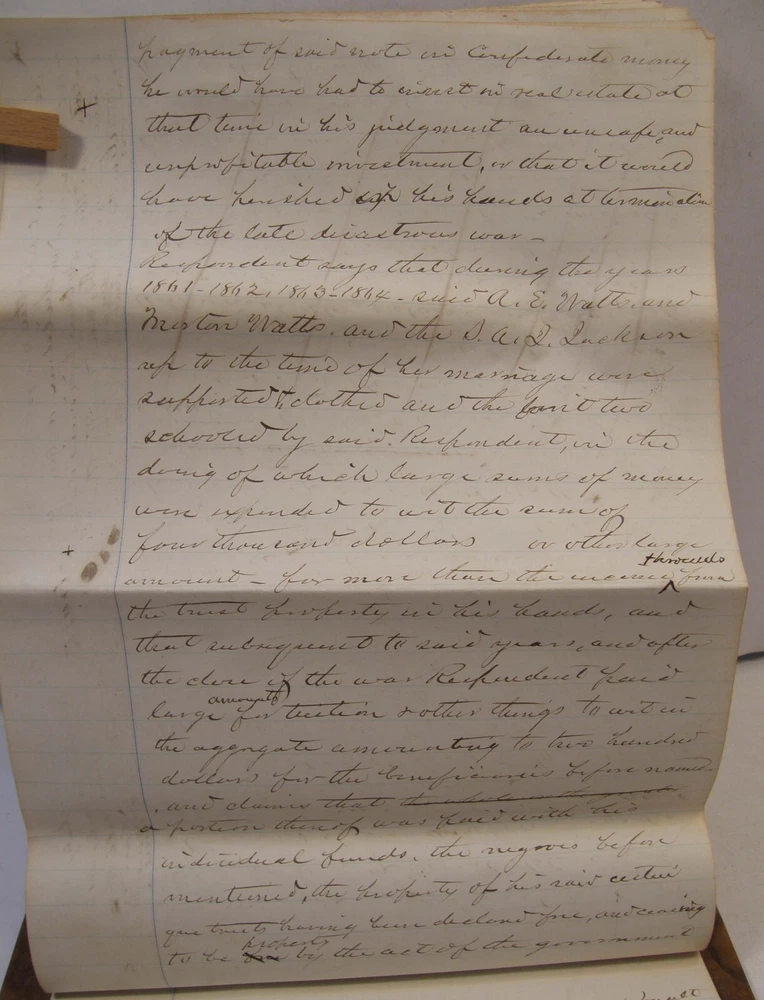 payment of said note in Confederate money
he would have had to invest in real estate at
that time in his judgment an unsafe, and
unprofitable investment, or that it would
have perished his hands at termination
of the late disastrous war –
Respondent says that during the years
1861 – 1862, 1863 – 1864 – said A. E. Watts, and
Morton Watts, and the S. A. J. Jackson
up to the time of her marriage were
supported & clothed and the first two
schooled by said Respondent, in the
doing of which large sums of money
were expended to wit the sum of
four thousand dollars or other large
amount – far more than the income ^ therewith from
the trust property in his hands, and
that subsequent to said years, and after
the close of the war Respondent paid
large amounts for tuition & other things to wit in
the aggregate amounting to two hundred
dollars for the beneficiaries before named
, and claims that
a portion thereof was paid with his
individual funds. the negroes before
mentioned, the property of his said cestui
que trusts having been declared free, and ceasing
to be property by the act of the government